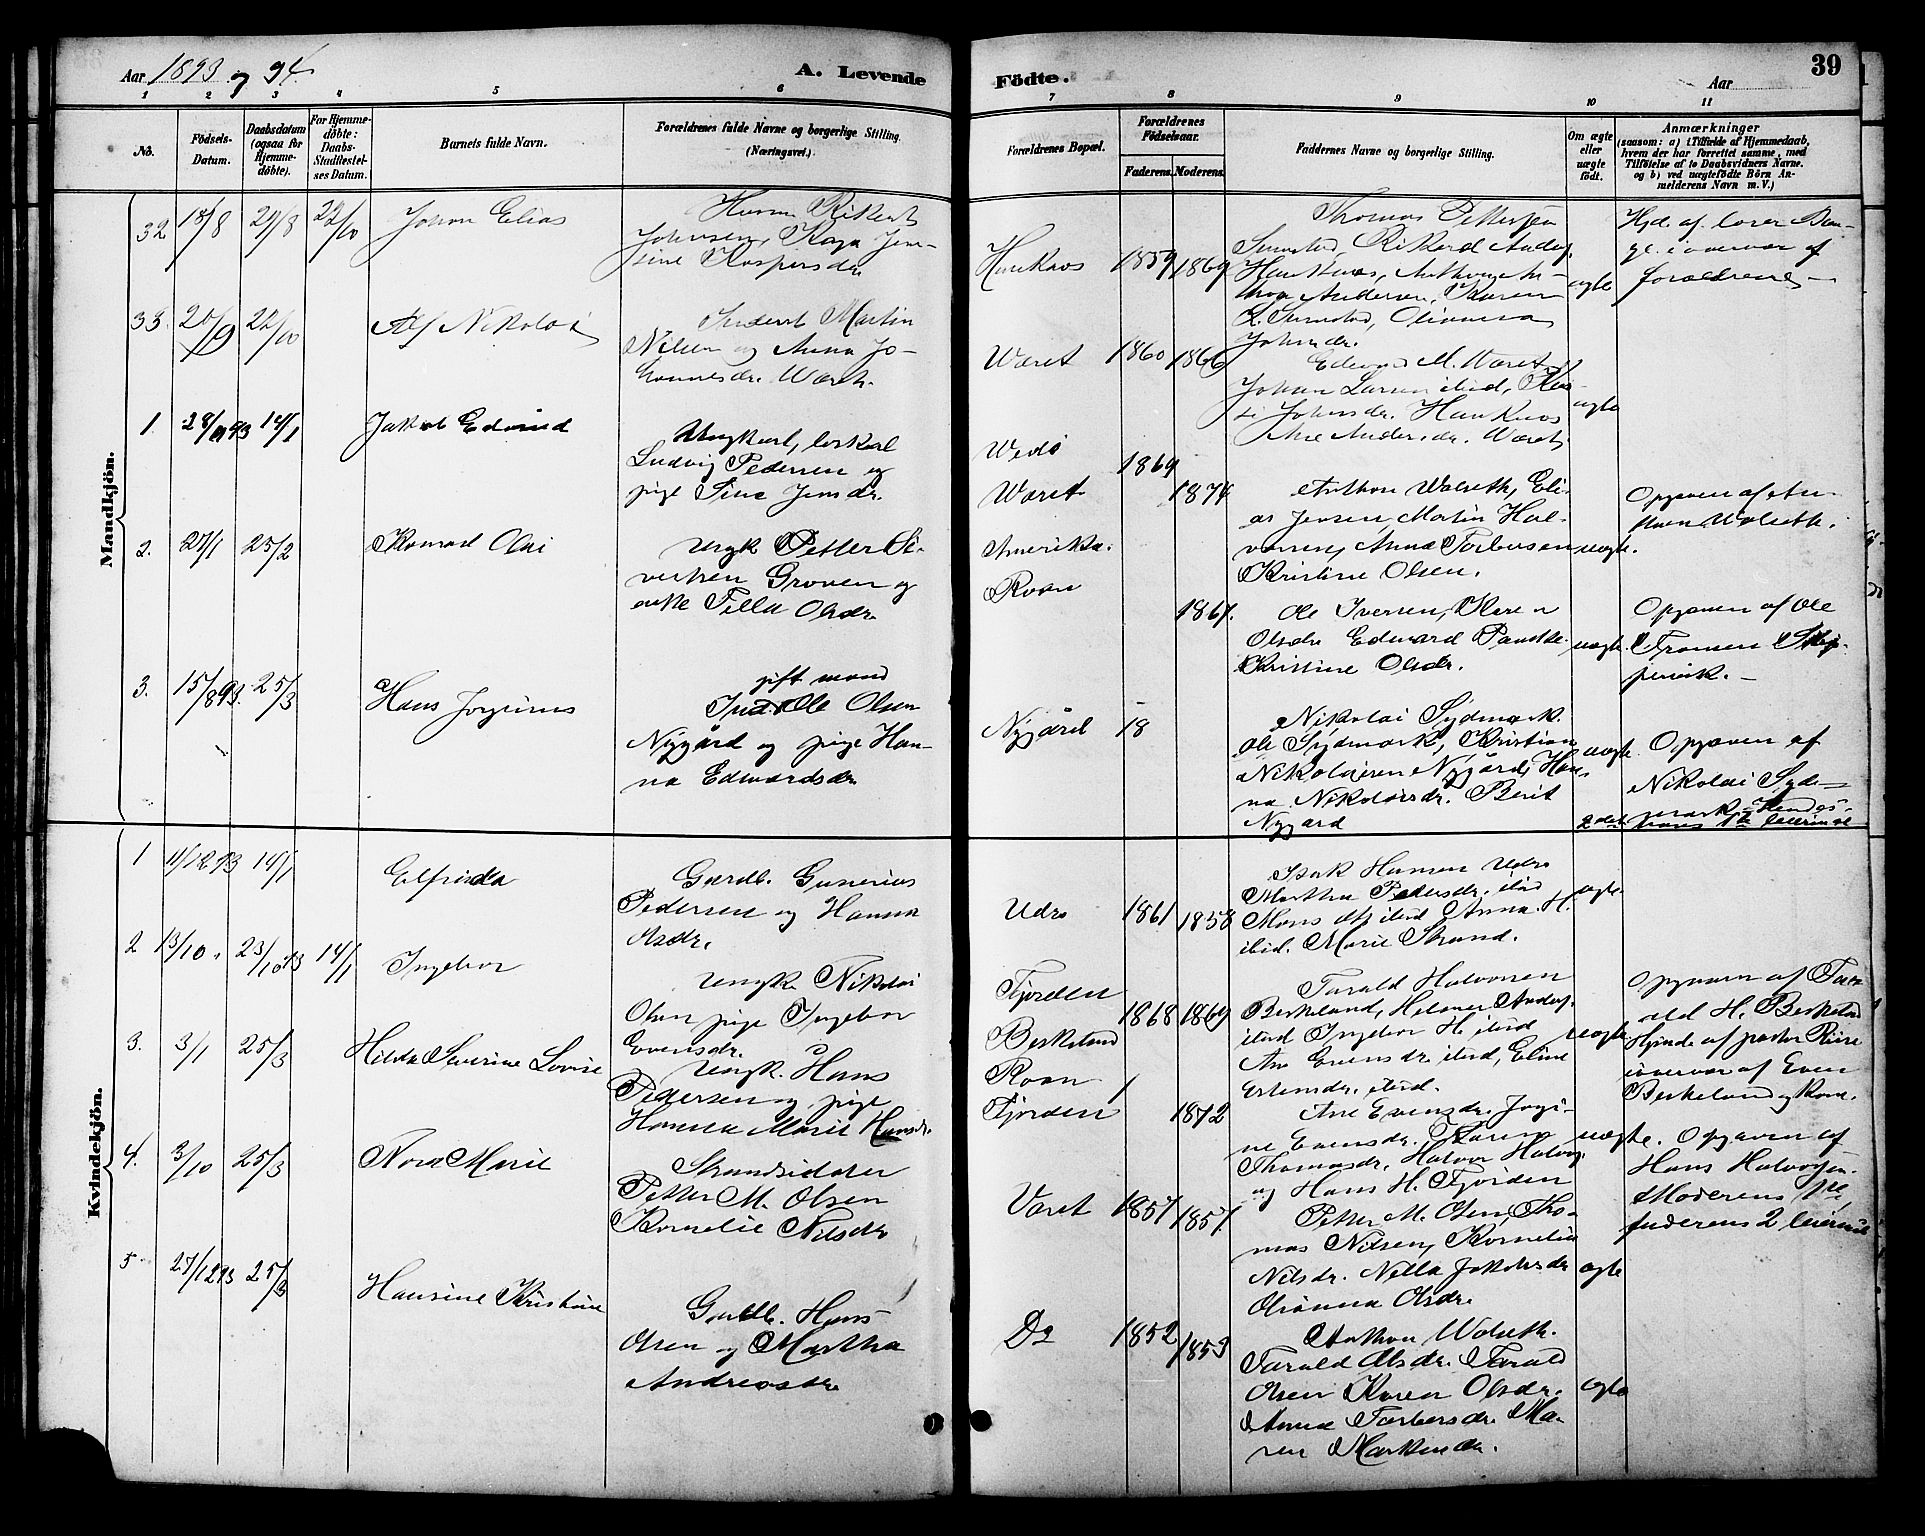 Aar 1893 og 94.
A. Levende
Födte.
Aar
39
1 2 3 4 5 6 7 8 9 10 11
No.
Födsels-
Datum.
Daabsdatum
(ogsaa for
Hjemme-
döbte).
For Hjemme-
döbte:
Daabs-
Stadfæstel-
ses Datum.
Barnets fulde Navn.
Forældrenes fulde Navne og borgerlige Stilling.
(Næringsvei.)
Forældrenes Bopæl.
Forældrenes
Födselsaar.
Faderens. Moderens.
Faddernes Navne og borgerlige Stilling.
Om ægte
eller
uægte
födt.
Anmærkninger
(saasom: a) i Tilfælde af Hjemmedaab,
hvem der har forrettet samme, med
Tilföielse af to Daabsvidners Navne,
og b) ved uægtefödte Börn An-
melderens Navn m. V.)
Mandkjön.
32 18/8 29/8 22/10 Johan Elias
Rikert
Johnsen, Kaja Jen-
sine Kaspersdr.
Hanknos 1859 1869
Thomas Pettersen
Sumstad, Rikard Andrs.
Hanknos, Anthon An-
Andersen, Karen
Sumstad,
Johnsdr.
ægte
Hjd. af lærer
i overvær af
forældrene
33. 20/9 22/10 Alf Nikolai
Martin
Nilsen og Anna Jo-
hannesdr. Wæret.
Wæret 1860 1866
M. Wæret
Johan Larsen ibid,
Johnsdr. Hanknos
Ane Andersdr. Wæret
ægte
1. 28/11 93 14/1 Jakob Edvind
Ungkarl, løskarl
Ludvig Pedersen og
pige Sina Jensdr.
Wedø
Wæret
1869
1874
Anthon Walseth, Eli-
as Jensen, Martin Hal-
vorsen, Anna Torbersen
Kristine Olsen.
uægte.
Opgaven af An-
thon Walseth.
2. 27/1 25/2 Konrad Olai
Ungk. Petter Si-
vertsen Groven og
enke Tilla Olsdr.
Amerika.
Roan
1867.
Ole Iversen, Karen
Olsdr. Edward
Kristine Olsdr.
uægte.
Opgaven af Ole
3. 15/8 93. 25/3 Hans Jørginus
gift mand
Ind. Ole Olsen
Nygård og pige Han-
na Edwardsdr.
Nygård 18
Nikolai Sydmark.
Ole Sydmark, Kristian
Nikolaisen Nygård, Han-
na Nikolaisdr. Berit
Nygård
uægte
Opgaven af
Nikolai Syd-
mark.
hans 1ste leiermål
Kvindekjön.
1 11/12 93 14/1 Elfrida
Gårdb. Gunerius
Pedersen og Hanna
Olsdr.
Udrø 1861 1858
Isak Hansen Udrø
Martha Pedersdr. ibid
Mons ibid Anna H.
ibid. Marie Strand.
ægte
2 13/10. 23/10 93 14/1 Ingebor
Ungk. Nikolai
Olsen pige Ingebor
Evensdr.
Fjorden
Beskeland
1868 1869
Tarald Halvorsen
Beskeland, Helmer Anders.
ibid Ingebor H. ibid
Ane Evensdr. ibid, Eline
Estensdr. ibid.
uægte
Opgaven af Tar-
ald H. Beskeland
Hjmde af pastor Riise
i overvær af Even
Beskeland og Kone.
3. 3/1 25/3 Hilda Severine Lovise
Ungk. Hans
Pedersen og pige
Hanna Marie Hansdr.
Roan
Fjorden
1872
Ane Evensdr. Jørgi-
ne Evensdr. Karen
Thomasdr. Halvor Halvors.
og Hans H. Fjorden
uægte.
Opgaven af
Hans Halvorsen.
Moderens 1ste,
faderens 2 leiermål
4. 3/10 25/3 Nora Marie
Strandsidder
Petter M. Olsen
Kornelie Nilsdr
Været 1857 1857
Petter M. Olsen, Tho-
mas Nilsen, Kornelia
Nilsdr. Nella Jakobsdr
Olsdr.
ægte
5 27/12 93 25/3 Hansine Kristine
Gårdb. Hans
Olsen og Martha
Andreasdr.
Do 1852 1853
Anthon Walseth.
Tarald Olsdr. Tarald
Olsen Karen Olsdr.
Anna Torbersdr. Ma-
ren
ægte